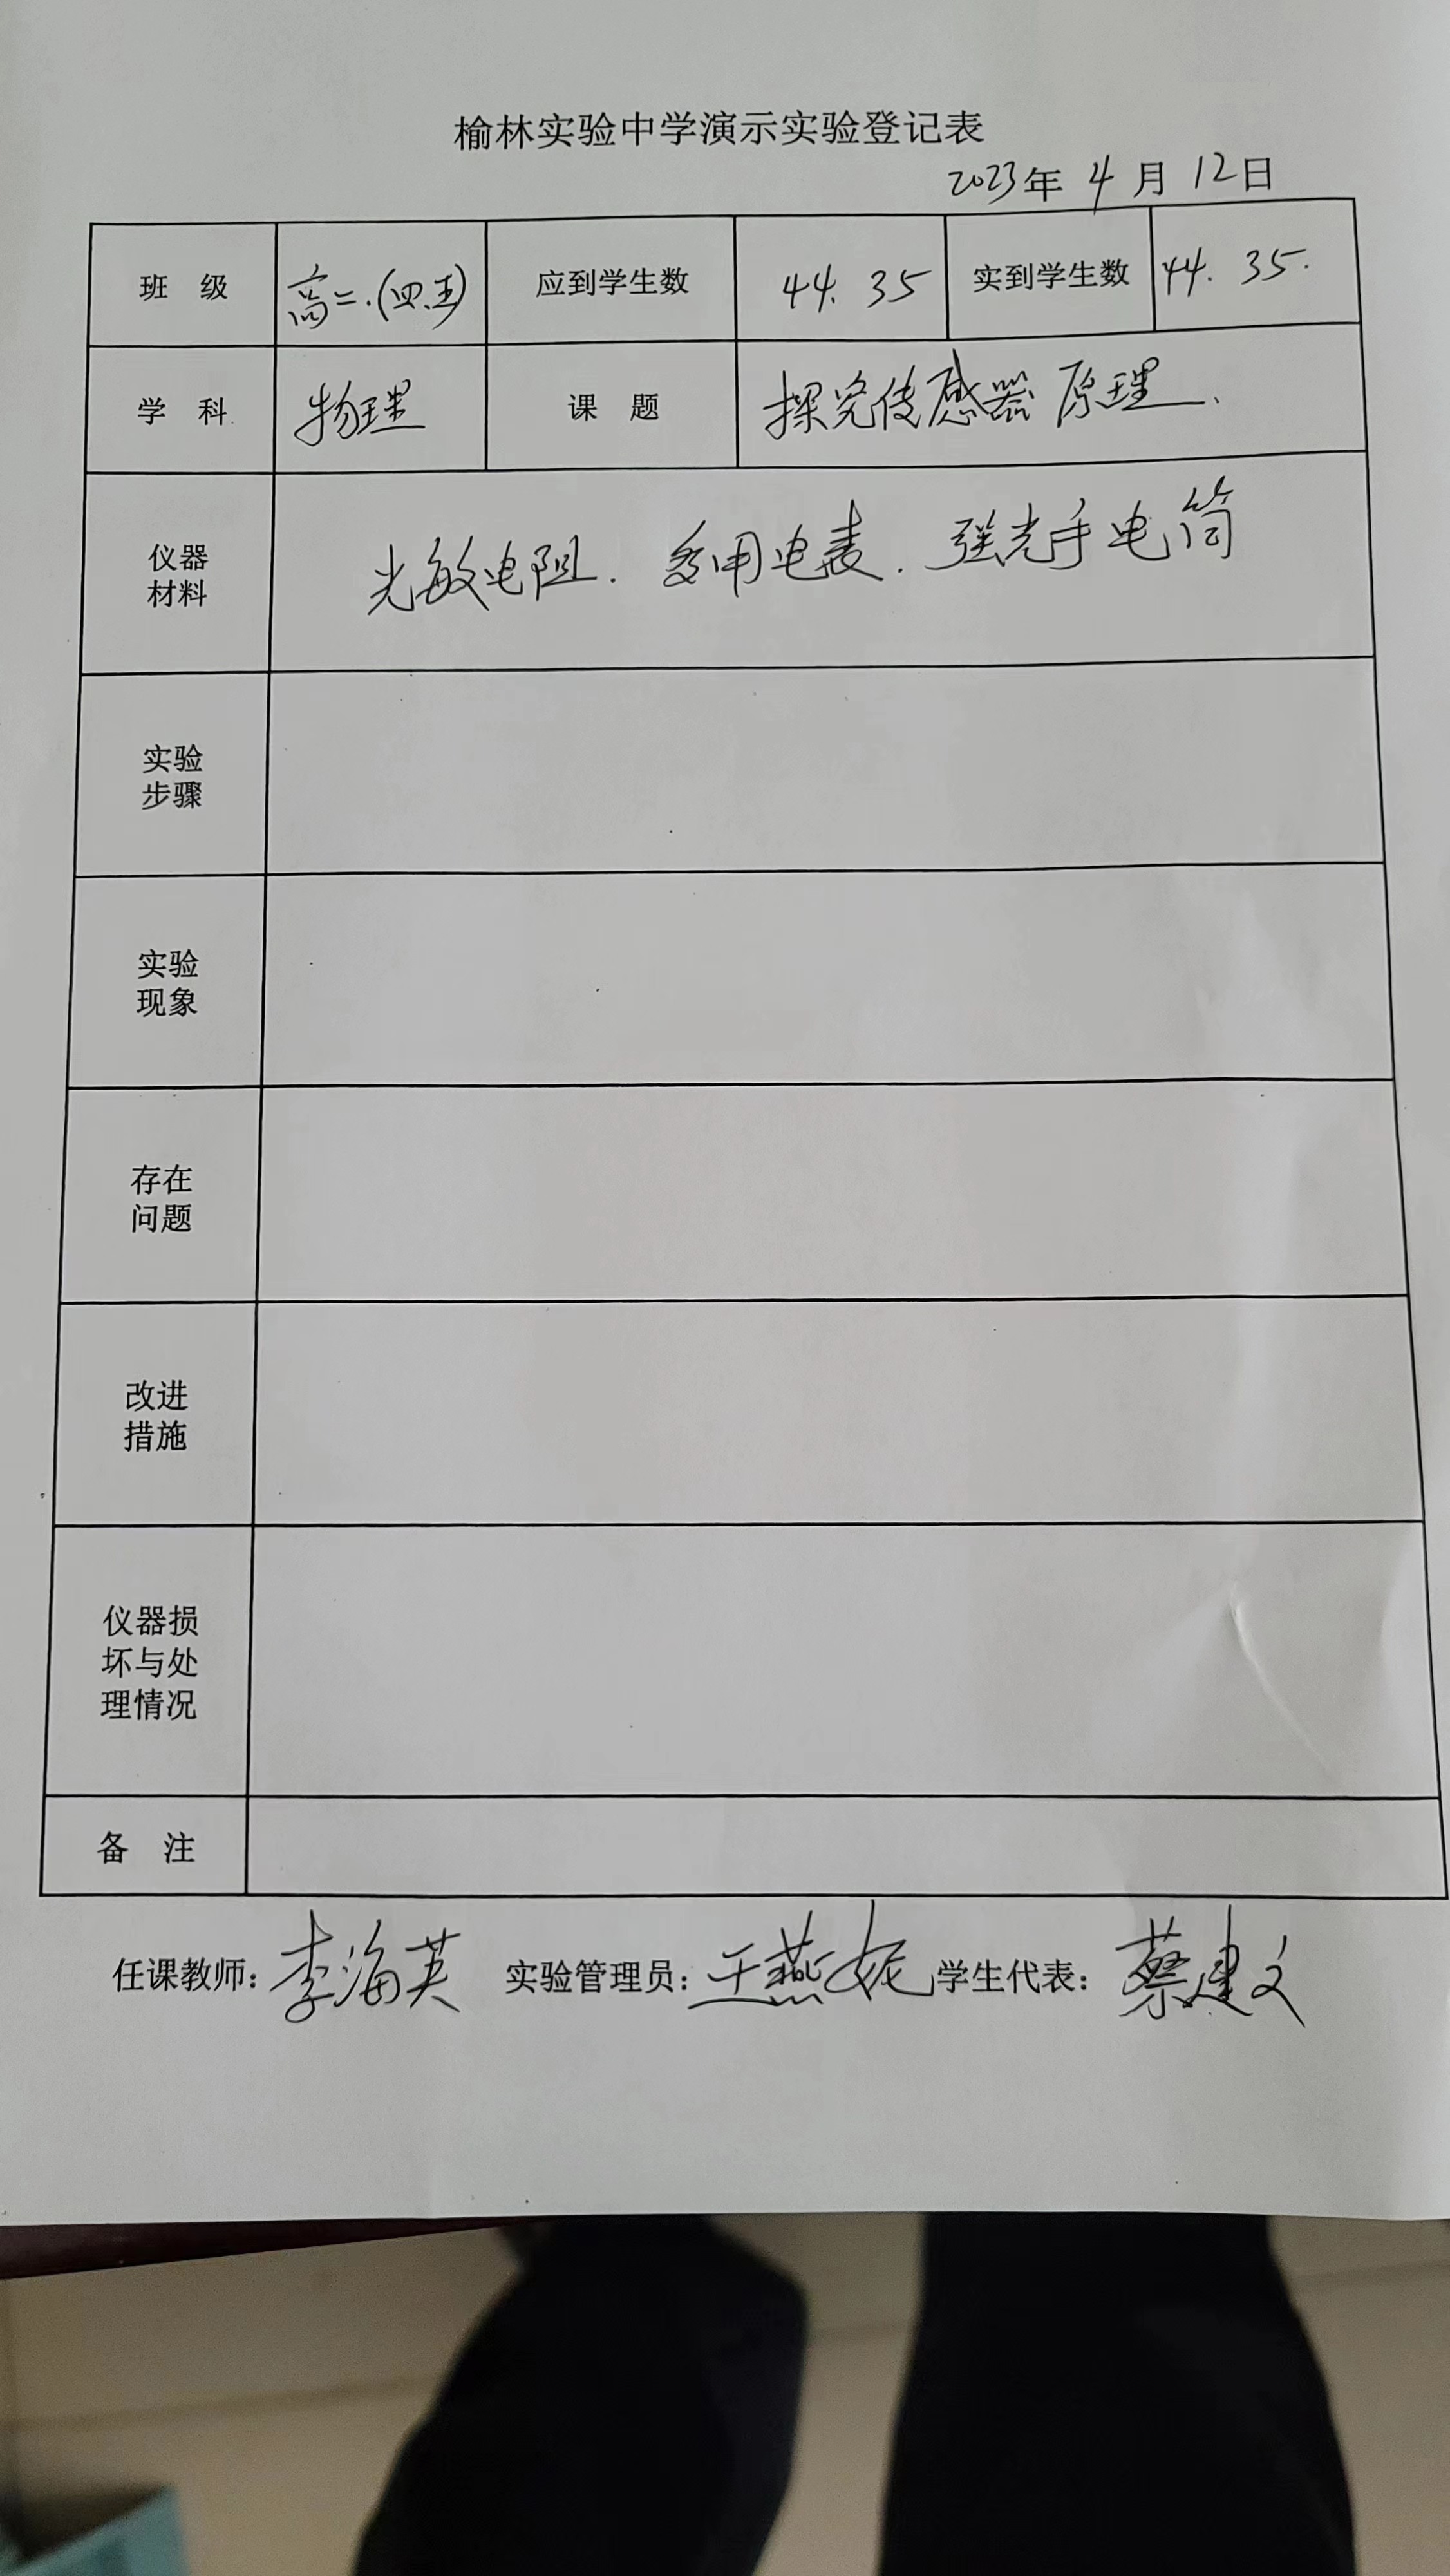 榆林实验中学演示实验登记表
2023年 4 月 12日
班 级 高二.(四.五) 应到学生数 44. 35 实到学生数 44. 35.
学 科 物理 课 题 探究传感器原理.
仪器
材料
光敏电阻. 多用电表. 强光手电筒
实验
步骤
实验
现象
存在
问题
改进
措施
仪器损
坏与处
理情况
备 注
任课教师：李海英 实验管理员：王燕妮 学生代表：蔡建文